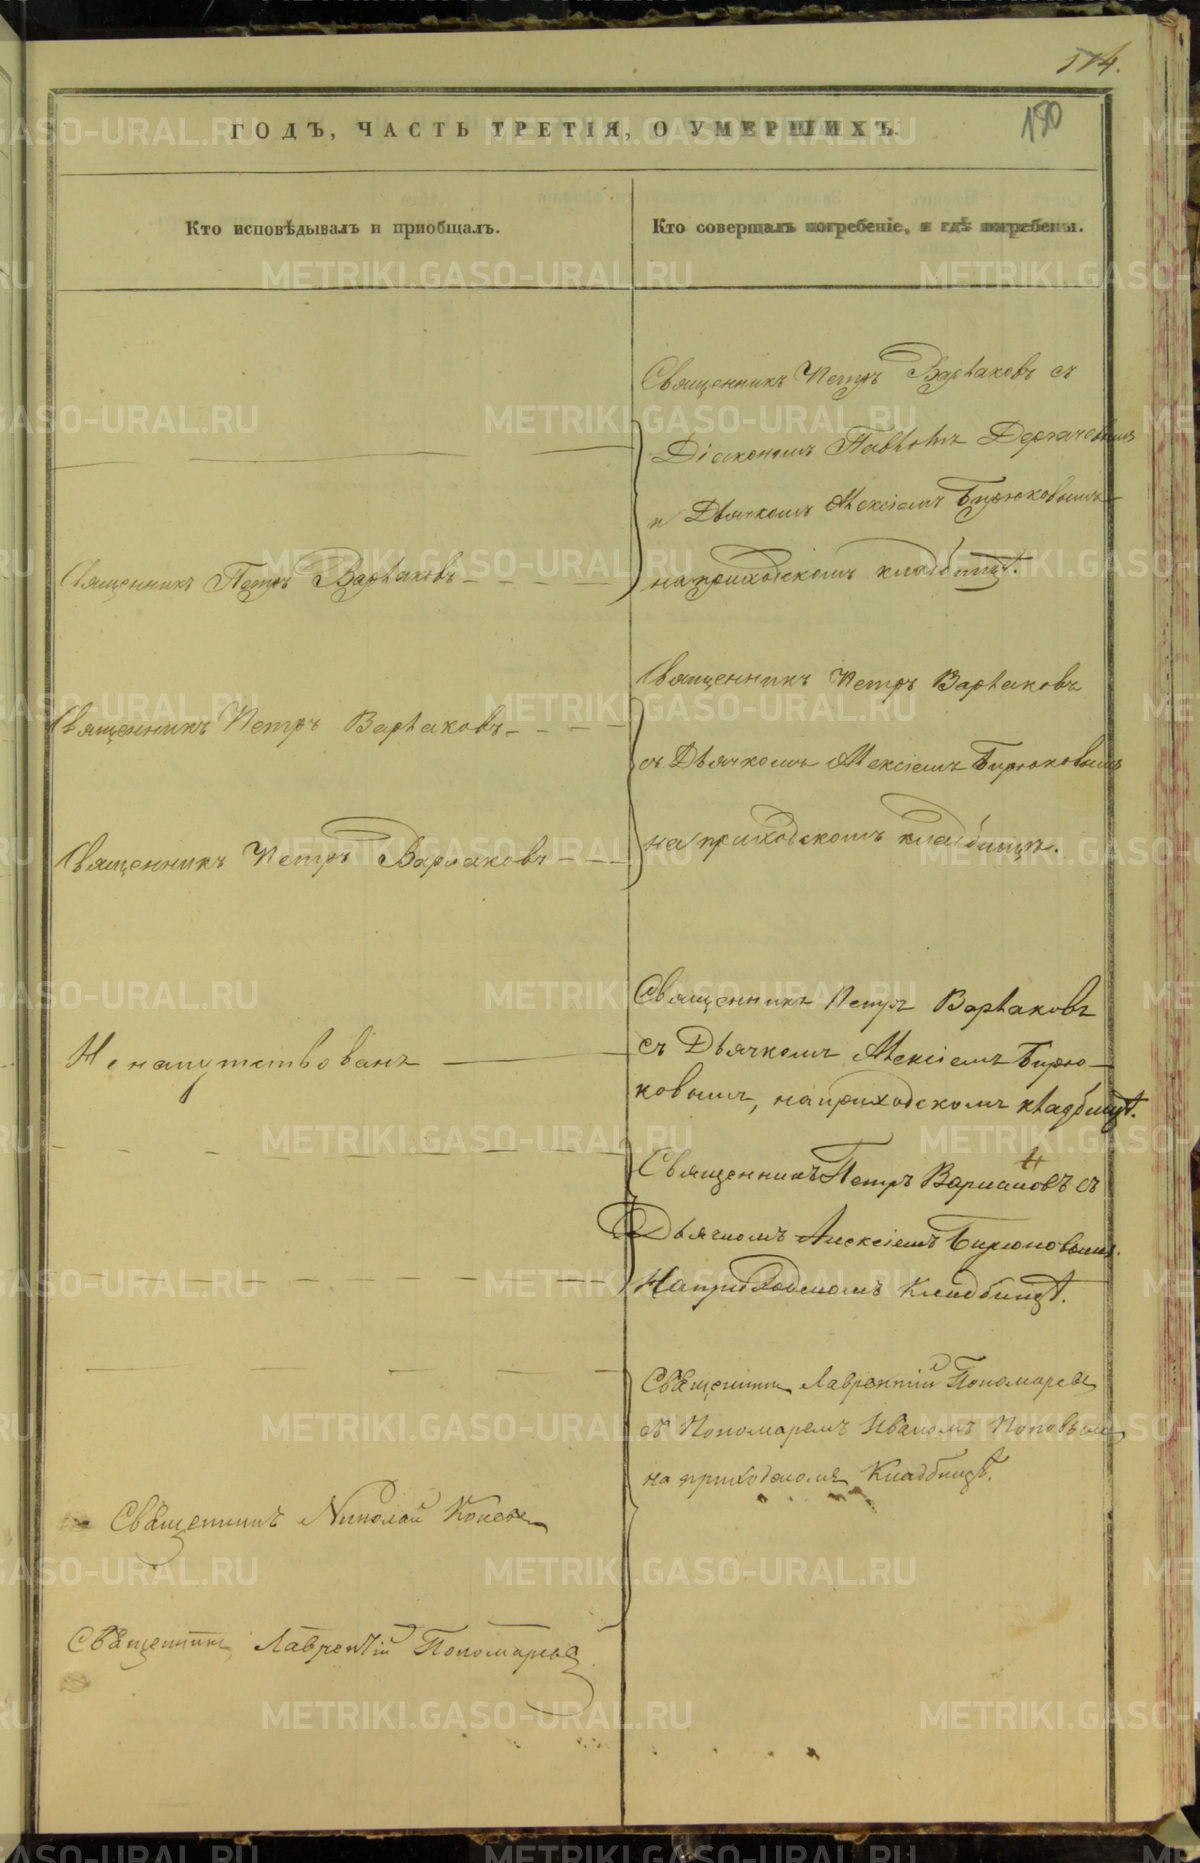 514.
180
ГОДЪ, ЧАСТЬ ТРЕТІЯ, О УМЕРШИХЪ.
Кто исповѣдывалъ и пріобщалъ.
Кто совершалъ погребеніе, и гдѣ погребены.
Священникъ Петръ Варлаковъ съ
Діакономъ Павломъ Дергачевымъ
и Дьячкомъ Алексіемъ Бирюковымъ
на приходскомъ кладбищѣ.
Священникъ Петръ Варлаковъ
Священникъ Петръ Варлаковъ
Священникъ Петръ Варлаковъ
съ Дьячкомъ Алексіемъ Бирюковымъ
на приходскомъ кладбищѣ.
Священникъ Петръ Варлаковъ
Священникъ Петръ Варлаковъ
Не напутствованъ
съ Дьячкомъ Алексіемъ Бирю-
ковымъ, на приходскомъ кладбищѣ.
Священникъ Петръ Варлаковъ съ
Дьячкомъ Алексіемъ Бирюковымъ
На приходскомъ Кладбищѣ.
Священникъ Лаврентій Пономаревъ
съ Пономаремъ Иваномъ Поповымъ
на приходскомъ Кладбищѣ.
Священникъ Николай
Священникъ Лаврентій Пономаревъ
METRIKI.GASO-URAL.RU